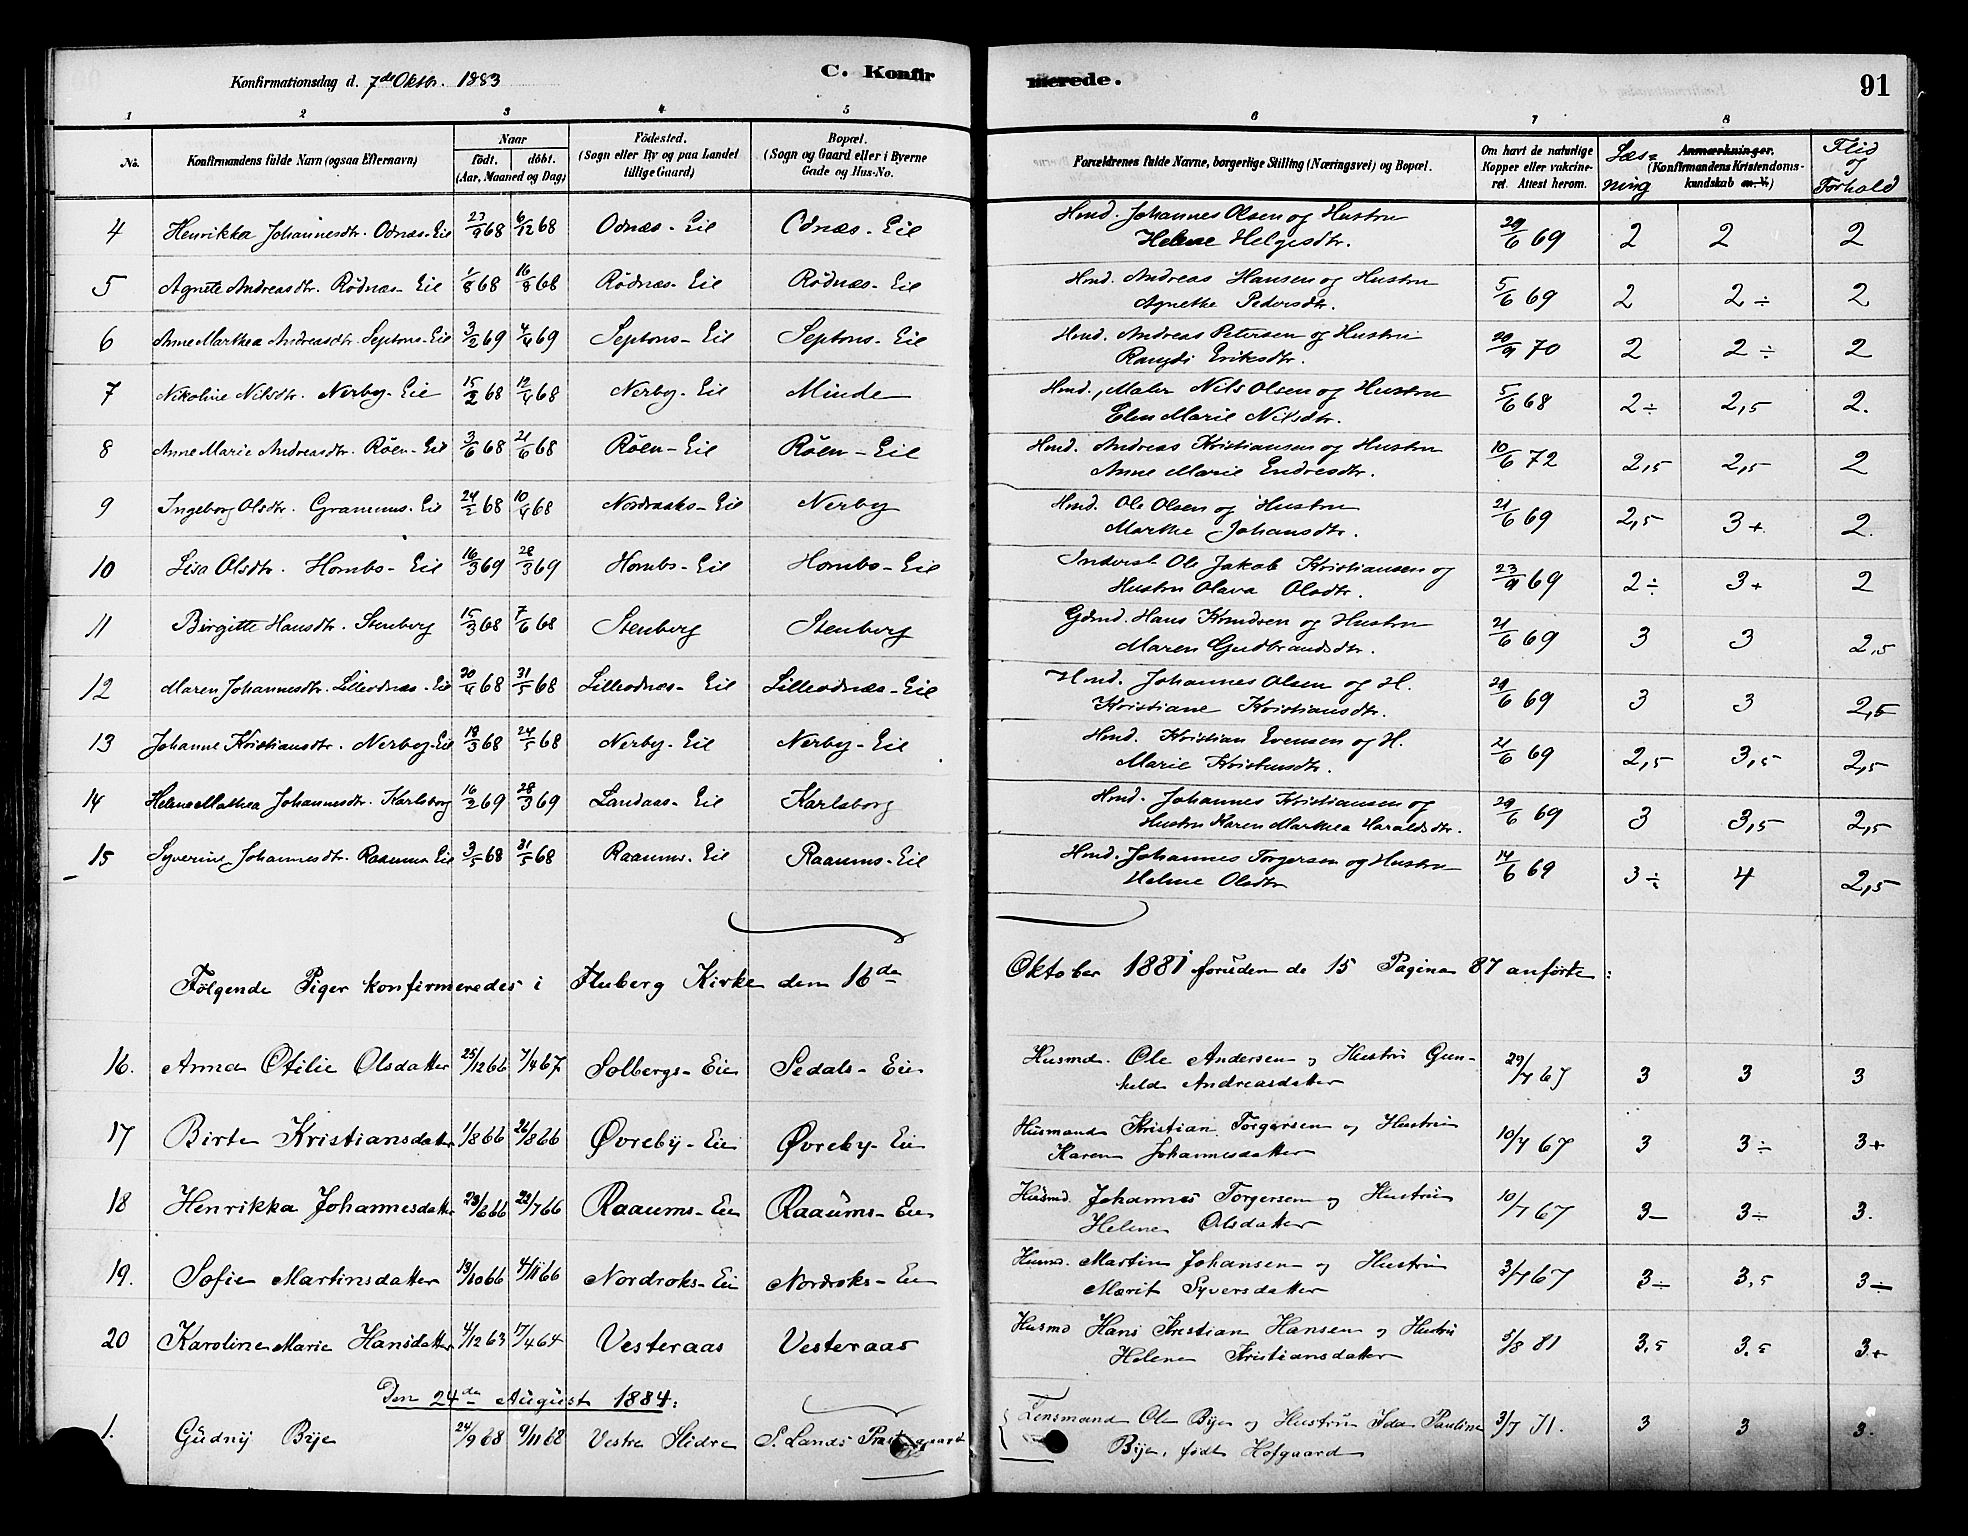 Konfirmationsdag d. 7de Oktbr. 1883 C. Konfirmerede. 91
1 2 3 4 5 6 7 8
No. Konfirmandens fulde Navn (ogsaa Efternavn) Naar födt. döbt. (Aar, Maaned og Dag) Födested. (Sogn eller By og paa Landet tillige Gaard) Bopæl. (Sogn og Gaard eller i Byerne Gade og Hus-No. Forældrenes fulde Navne, borgerlige Stilling (Næringsvei) og Bopæl. Om havt de naturlige Kopper eller vaccineret. Attest herom. Læsning Anmærkninger. (Konfirmandens Kristendomskundskab m. V.) Flid og Forhold
4 Henrikka Johannesdtr. Odnæs-Eie 23/9 68 6/12 68 Odnæs-Eie Odnæs-Eie Hmd. Johannes Olsen og Hustru Helene Helgesdtr. 29/6 69 2 2 2
5 Agnete Andreasdtr. Rödnæs-Eie 1/8 68 16/8 68 Rödnæs-Eie Rödnæs-Eie Hmd. Andreas Hansen og Hustru Agnethe Pedersdtr. 5/6 69 2 2÷ 2
6 Anne Marthea Andreasdtr. Septons-Eie 3/2 69 4/4 69 Septons-Eie Septons-Eie Hmd. Andreas Petersen og Hustru Rangdi Eriksdtr. 20/9 70 2 2÷ 2
7 Nikoline Nilsdtr. Nerby-Eie 15/2 68 12/4 68 Nerby-Eie Minde Hmd., Maler Nils Olsen og Hustru Elen Marie Nilsdtr. 5/6 68 2÷ 2,5 2.
8 Anne Marie Andreasdtr. Röen-Eie 3/6 68 21/6 68 Röen-Eie Röen-Eie Hmd. Andreas Kristiansen og Hustru Anne Marie Endresdtr. 10/6 72 2,5 2,5 2
9 Ingeborg Olsdtr. Grammes-Eie 24/2 68 10/4 68 Nordraaks-Eie Nerby Hmd. Ole Olsen og Hustru Marthe Johansdtr. 21/6 69 2,5 3+ 2.
10 Lisa Olsdtr. Hombs-Eie 16/3 69 28/3 69 Hombs-Eie Hombs-Eie Inderst Ole Jakob Kristiansen og Hustru Olava Olsdtr. 23/9 69 2÷ 3+ 2
11 Birgitte Hansdtr. Stenberg 15/3 68 7/6 68 Stenberg Stenberg Gdmd. Hans Knudsen og Hustru Maren Gudbrandsdtr. 21/6 69 3 3 2,5
12 Maren Johannesdtr. Lilleodnæs-Eie 30/4 68 31/5 68 Lilleodnæs-Eie Lilleodnæs-Eie Hmd. Johannes Olsen og H. Kristiane Kristiansdtr. 29/6 69 3 3 2,5
13 Johanne Kristiansdtr. Nerby-Eie 18/3 68 24/5 68 Nerby-Eie Nerby-Eie Hmd. Kristian Evensen og H. Marie Kristensdtr. 21/6 69 2,5 3,5 2,5
14 Helene Mathea Johannesdtr. Karlsborg 16/2 69 28/3 69 Landaas-Eie Karlsborg Hmd. Johannes Kristiansen og Hustru Karen Marthea Haraldsdtr. 29/6 69 3 3,5 2,5
15 Syverine Johannesdtr. Raaums-Eie 3/5 68 31/5 68 Raaums-Eie Raaums-Eie Hmd. Johannes Torgersen og Hustru Helene Olsdtr 14/6 69 3÷ 4 2,5
Følgende Piger konfirmeredes i Fluberg Kirke den 16de Oktober 1881 foruden de 15 Pagina 87 anførte:
16. Anna Otilie Olsdatter 25/12 66 7/4 67 Solbergs-Eie Sedals-Eie Husmd. Ole Andersen og Hustru Gunhild Andreasdatter 29/7 67 3 3 3
17 Birte Kristiansdatter 1/8 66 26/8 66 Øvreby-Eie Øvreby-Eie Husmand Kristian Torgersen og Hustru Karen Johannesdatter 10/7 67 3 3÷ 3+
18 Henrikka Johannesdatter 23/6 66 22/7 66 Raaums-Eie Raaums-Eie Husmd. Johannes Torgersen og Hustru Helene Olsdatter 10/7 67 3- 3÷ 3.
19. Sofie Martinsdatter 19/10 66 4/11 66 Nordroks-Eie Nordroks-Eie Husmd. Martin Johansen og Hustru Marit Syversdatter 3/7 67 3÷ 3,5 3÷
20 Karoline Marie Hansdatter 4/12 63 17/4 64 Vesteraas Vesteraas Husmd Hans Kristian Hansen og Hustru Helene Kristiansdatter 5/8 81 3,5 3,5 3+
Den 24de August 1884:
1. Gudny Bye 24/9 68 9/11 68 Vestre Slidre S. Lands Præstegaard Lensmand Ole Bye og Hustru Ida Pauline Bye, født Hofgaard 3/7 71. 3 3 3.